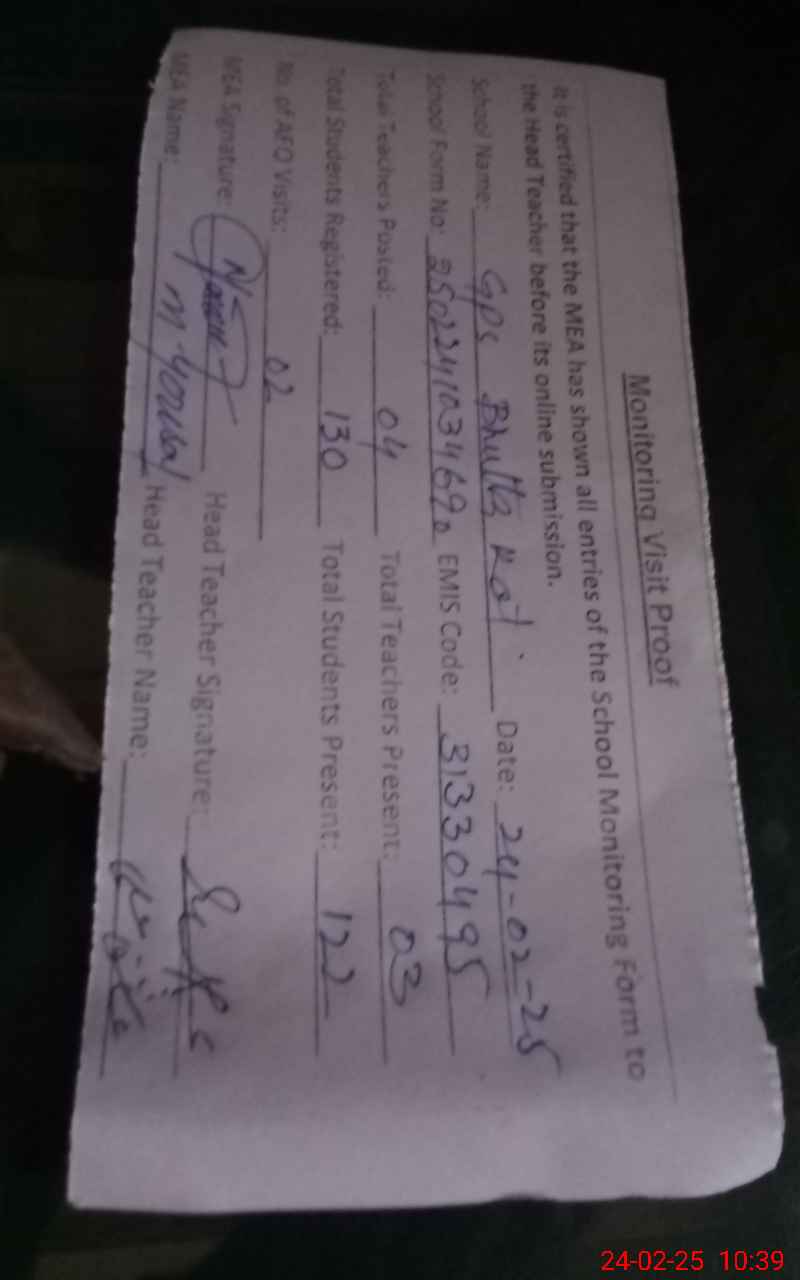 Monitoring Visit Proof
It is certified that the MEA has shown all entries of the School Monitoring Form to
the Head Teacher before its online submission.
School Name: GPS Bhutta Kot. Date: 24-02-25
School Form No: 2502241034690 EMIS Code: 31330495
Total Teachers Posted: 04 Total Teachers Present: 03
Total Students Registered: 130 Total Students Present: 122
No. of AEO Visits: 02
MEA Signature: Head Teacher Signature:
MEA Name: M. Yousaf Head Teacher Name:
24-02-25 10:39